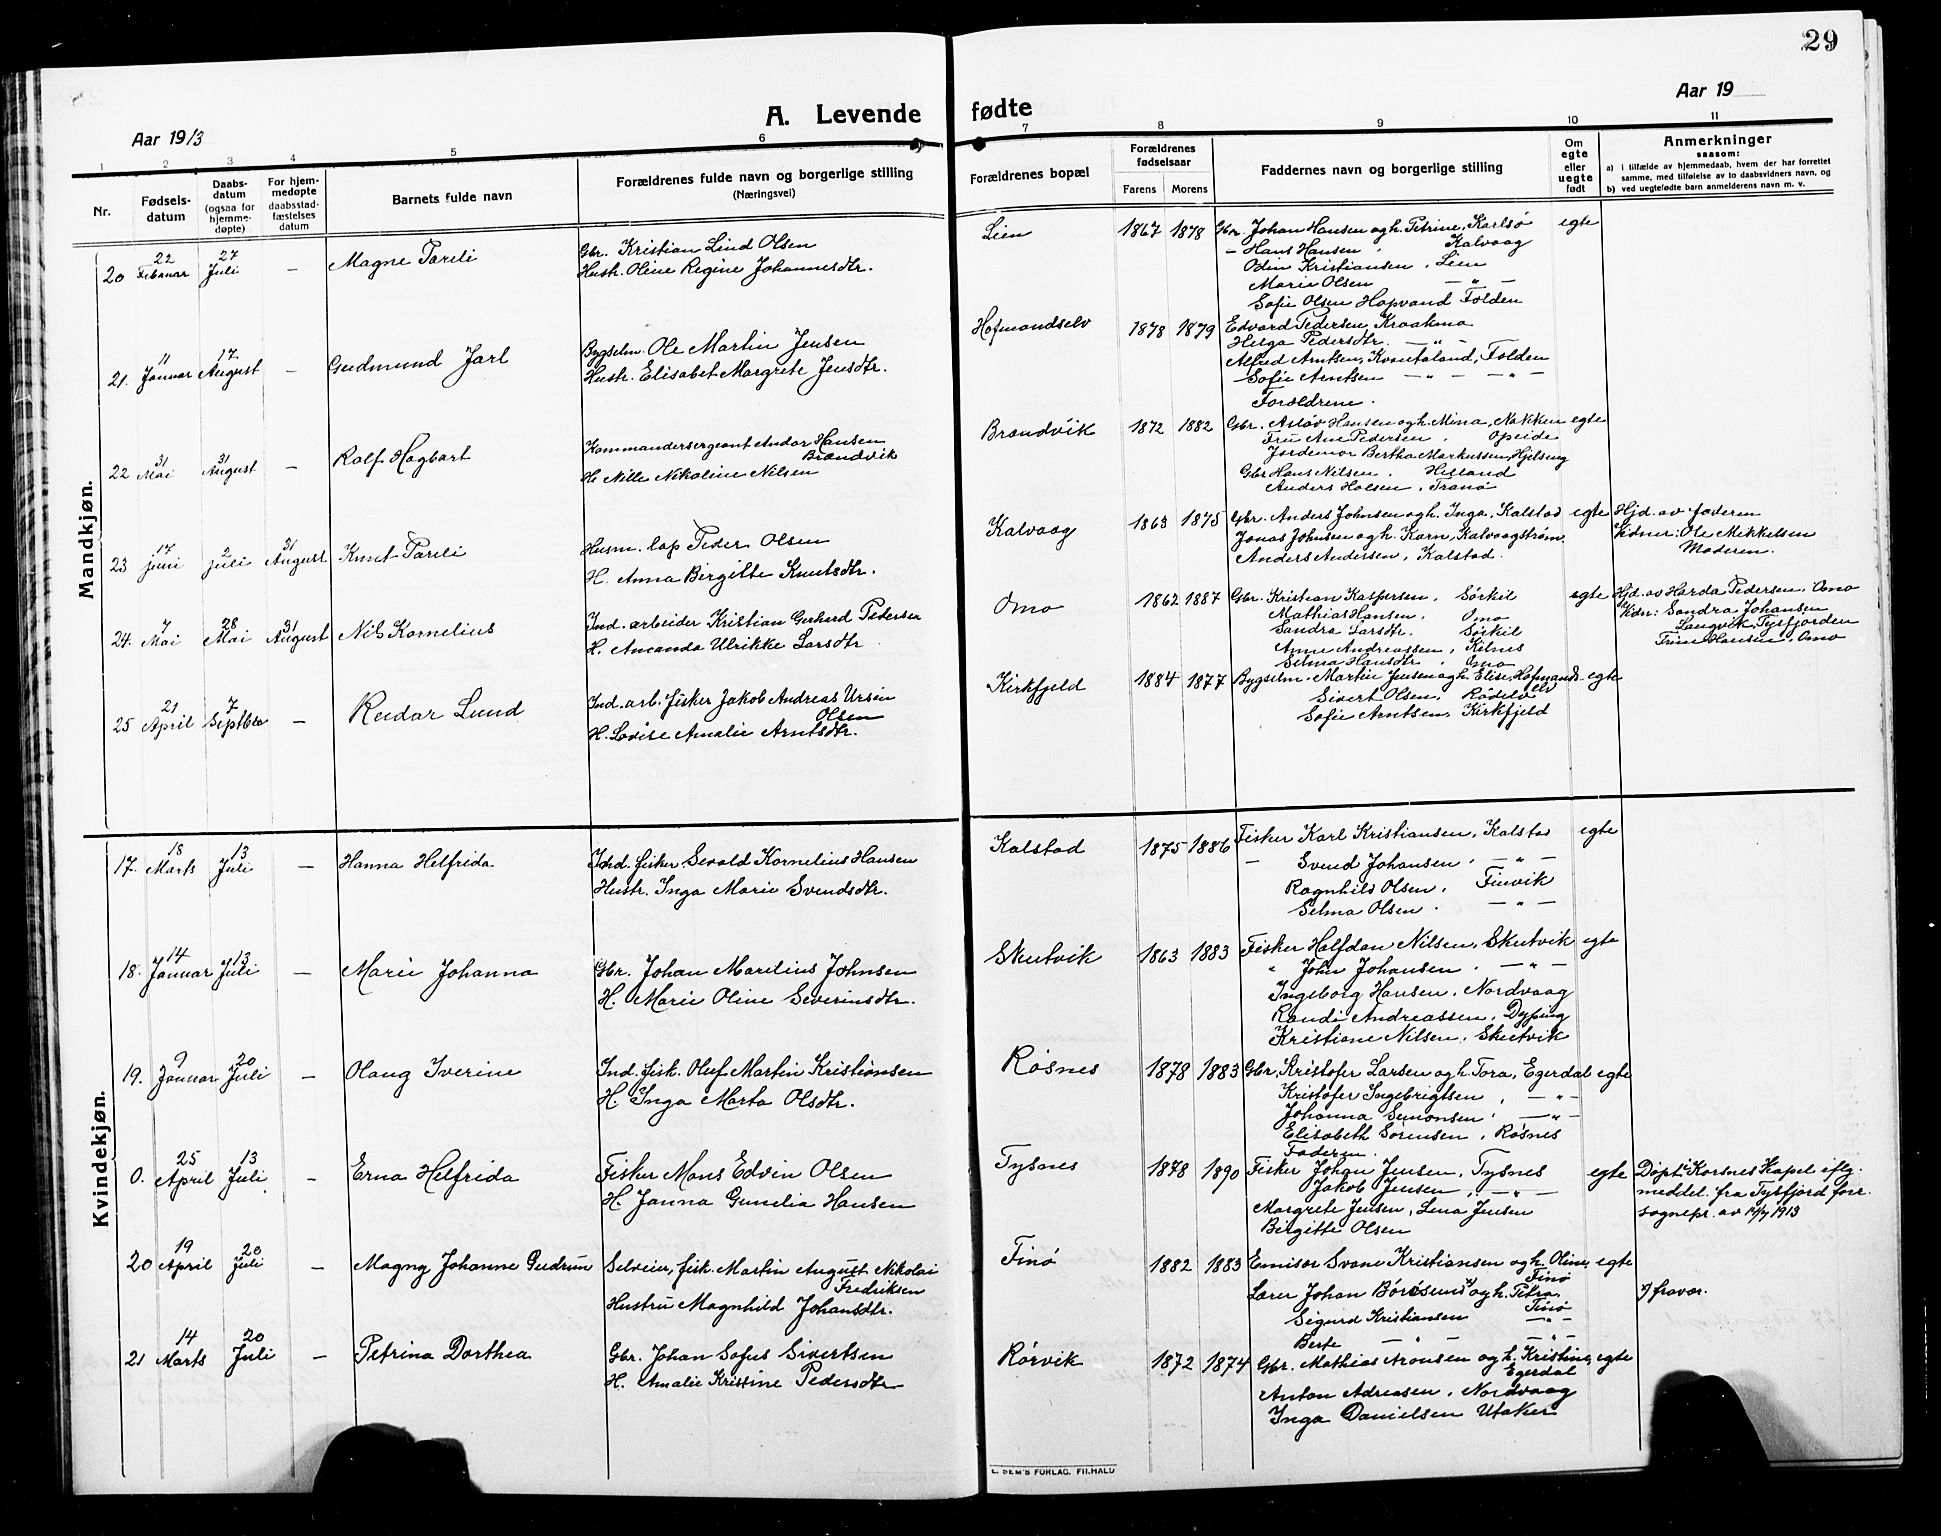 29
A. Levende fødte
Aar 1913
Aar 19
1 2 3 4 5 6 7 8 9 10 11
Nr.
Fødsels-
datum
Daabs-
datum
(ogsaa for
hjemme-
døpte)
For hjem-
medøpte
daabsstad-
fæstelses
datum
Barnets fulde navn
Forældrenes fulde navn og borgerlige stilling
(Næringsvei)
Forældrenes bopæl
Forældrenes
fødselsaar
Farens Morens
Faddernes navn og borgerlige stilling
Om
egte
eller
uegte
født
Anmerkninger
saasom:
a) i tilfælde av hjemmedaab, hvem der har forrettet
samme, med tilføielse av to daabsvidners navn, og
b) ved uegtefødte barn anmelderens navn m. v.
Mandkjøn.
20 22 Februar 27 Juli — Magne Pareli
Gbr. Kristian Lind Olsen
Hustr. Oline Regine Johannesdtr.
Lien 1867 1878
Gbr. Johan Hansen og h. Petrine, Karlsø egte
— Hans Hansen, Kalvaag
Odin Kristiansen, Lien
Marie Olsen — " —
Sofie Olsen Hopvand Folden
21. 11 Januar 17 August — Gudmund Jarl
Bygselm. Ole Martin Jensen
Hustr. Elisabet Margrete Jensdtr.
Hofmandselv 1878 1879
Edvard Pedersen, Kraakmo
Helga Pedersdtr. — " —
Alfred Arntsen, Kvantoland, Folden
Sofie Arntsen — " — — " —
Forældrene.
22 31 Mai 31 August — Rolf Hagbart
Kommandersergeant Andor Hansen
Brandvik
H. Nille Nikoline Nilsen
Brandvik 1872 1882
Gbr. Asløv Hansen og h. Mina, Nakken egte
Fru Ane Pedersen, Opeide
Jordemor Bertha Markussen, Hjelseng
Gbr. Hans Nilsen, Helland
Anders Holsen, Tranø
23 17 juni 2 juli 31 August Knut Pareli
Husm. lap Peder Olsen
H. Anna Birgitte Knutsdtr.
Kalvaag 1863 1875
Gbr. Anders Johnsen og h. Inga, Kalstad egte
Jonas Johnsen og h. Karn, Kalvaagstrøm
Anders Andersen, Kalstad.
Hjd. av faderen
Vidner: Ole Mikkelsen
Moderen.
24. 7 Mai 28 Mai 31 August Nils Kornelius
Ind. arbeider Kristian Gerherd Pedersen
H. Amanda Ulrikke Larsdtr.
Omo 1862 1887
Gbr. Kristian Kaspersen, Sørkil egte
Mathias Hansen, Omo
Sandra Larsdtr. Sørkil
Anne Andreassen, Kilnes
Selma Hansdtr, Omo
Hjd. av Harda Pedersen, Omo
Vidn: Sandra Johansen
Langvik, Tysfjorden
Trine Hansen, Omo
25 21 April 7 Septbr — Reidar Lund
Ind. arb. fisker Jakob Andreas Ursin
Olsen
H. Lovise Amalie Arntsdtr.
Kirkfjeld 1884 1877
Bygselm. Martin Jensen og h. Elise, Hofmands- egte
elv
Sivert Olsen, Rødelv
Sofie Arntsen, Kirkfjeld
Kvindekjøn.
17. 18 Marts 13 Juli — Hanna Helfrida
Ind. fisker Sevald Kornelius Hansen
Hustr. Inga Marie Svendsdtr.
Kalstad 1875 1886
Fisker Karl Kristiansen, Kalstad egte
— Svend Johansen, — " —
Ragnhild Olsen, Finvik
Selma Olsen. — " —
18. 14 Januar 13 Juli — Marie Johanna
Gbr. Johan Marelius Johnsen
H. Marie Oline Severinsdtr.
Skutvik 1863 1883
Fisker Halfdan Nilsen, Skutvik egte
" John Johansen, — " —
Ingeborg Hansen, Nordvaag
Randi Andreassen, Dyping
Kristiane Nilsen, Skutvik
19. 9 Januar 20 Juli — Olaug Iverine
Ind. fisk. Oluf Martin Kristiansen
H. Inga Marta Olsdtr.
Røsnes 1878 1883
Gbr. Kristofer Larsen og h. Tora, Egerdal egte
Kristofer Ingebrigtsen, — " —
Johanna Simonsen, — " —
Elisabeth Sørensen, Røsnes
Faderen.
0. 25 April 13 Juli — Erna Helfrida
Fisker Mons Edvin Olsen
H. Janna Gunelia Hansen
Tysnes 1878 1890
Fisker Johan Jensen, Tysnes egte
Jakob Jensen, — " —
Margrete Jensen, Lena Jensen
Birgitte Olsen
Døpt i Korsnes Kapel iflg.
meddel. fra Tysfjord forr.
sognepr. av 14/7 1913
20 19 April 20 Juli — Magny Johanne Gudrun
Selveier, fisk. Martin August Nikolai
Fredriksen
Hustru Magnhild Johansdtr.
Finø 1882 1883
Emisær Svane Kristiansen og h. Oline, egte
Finø
Lærer Johan Børøsund x) og h. Petra
Finø
Sigurd Kristiansen — " —
Berte — " — — " —
x) fravær.
21 14 Marts 20 Juli — Petrina Dorthea
Gbr. Johan Sofus Sivertsen
H. Amalie Kristine Pedersdtr
Rørvik 1872 1874
Gbr. Mathias Aronsen og h. Kristine, egte
Egerdal
Anton Adreasen, Nordvaag
Inga Danielsen Utaker
E. SEM'S FORLAG. FR.HALD